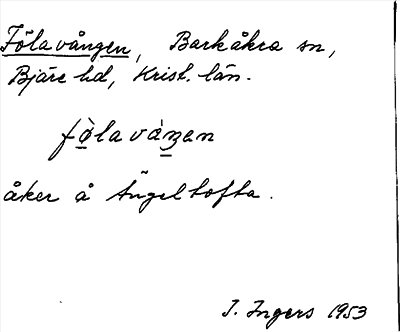 Fölavången, Barkåkra sn,
Bjäre hd, Krist. län.
fö̀lavàŋen
åker å Ängeltofta.
I. Ingers 1953